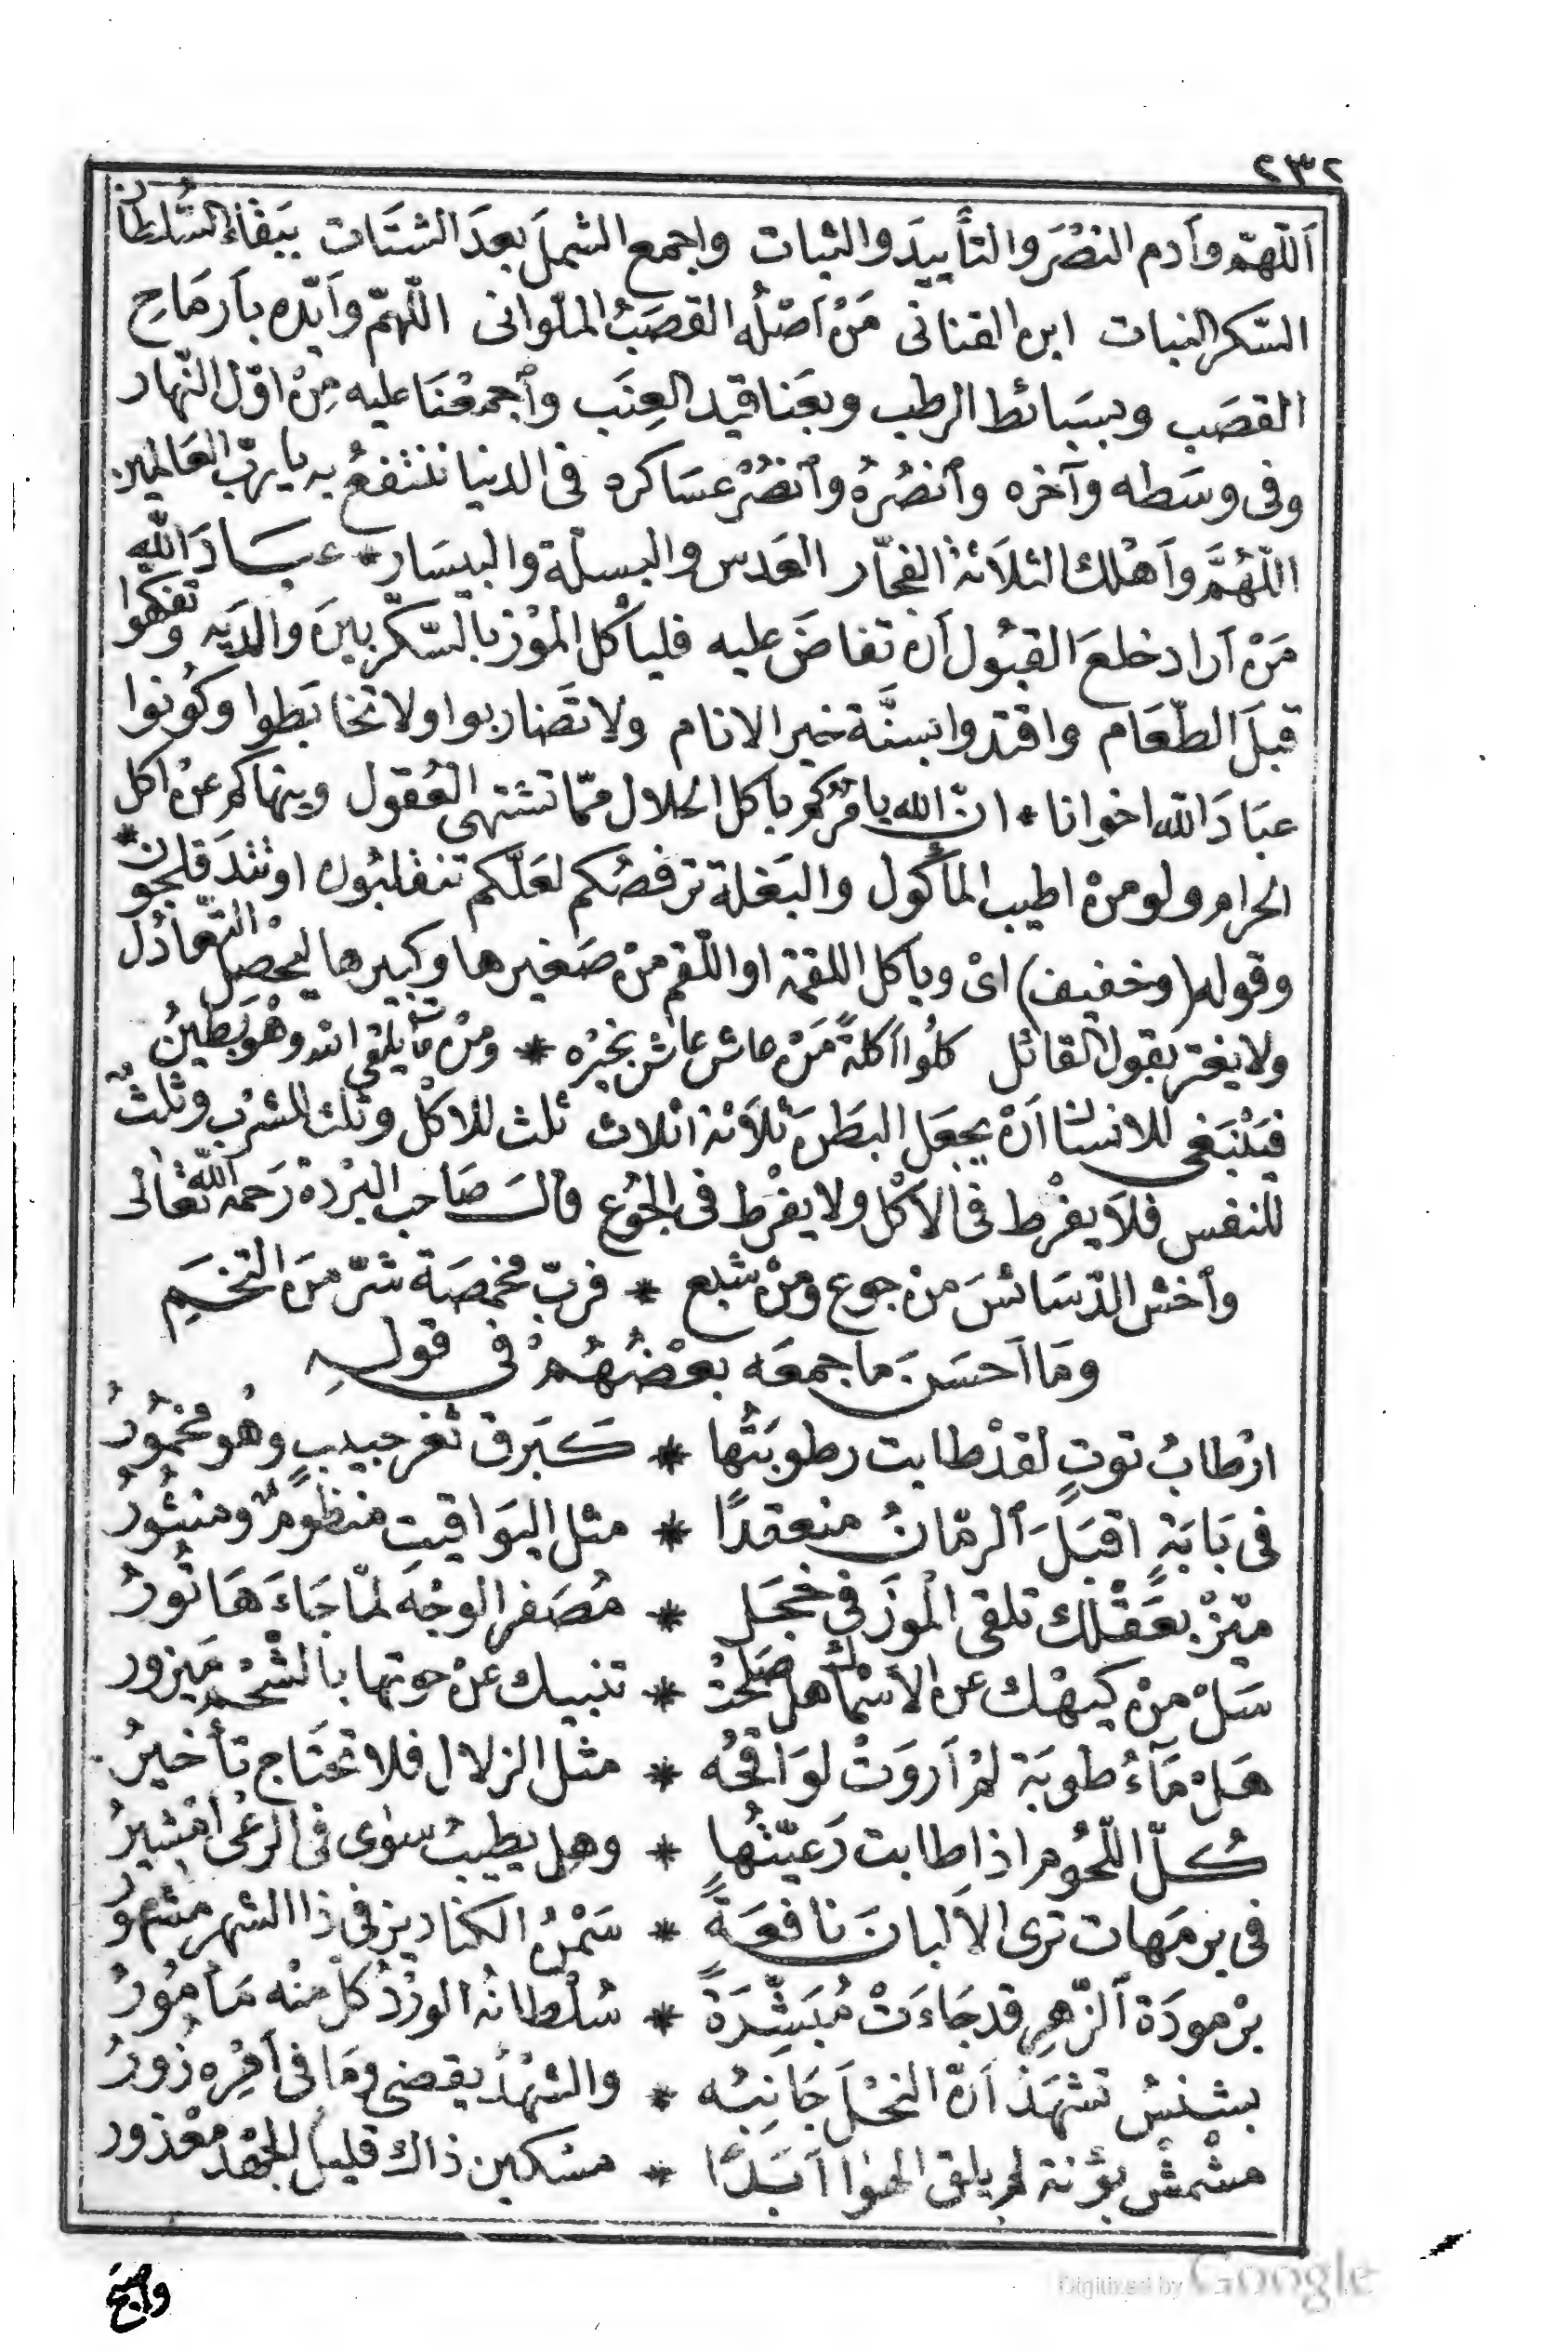 ٢٣٢
اَللّهمّ وأدم النصْرَ والتأييدَ والثبات واجمع الشملَ بعدَ الشتَات ببَقاءِ السُّلطان
السّكر النبات ابن القنانى مَنْ اَصْلُه القصَبُ الملّوانى اللّهمّ وأيّده بأَرمَاحِ
القصَب وبسَبائط الرطب وبعَناقيد العِنَب وأجمعْنَا عليه مِنْ اوّل النّهار
وفى وسَطه وآخره وأنصُرْهُ وأنصُرْ عسَاكره فى الدنيا ننتفعُ به يا ربّ العَالمين
اللّهُمَّ وأَهْلك الثلاَثةَ الفجّار العَدس والبسلّة والبيسَار * عبَادَ الله
مَنْ اَراد خلعَ القبُول أن تفاضَ عليه فليأكل الموْز بالسّكّر بينَ والدَيه وتفكّهوا
قبلَ الطّعَام واقتدوا بسنَّة خير الانام ولا تَضاربوا ولا تخابَطوا وكوُنوا
عبَادَ الله اخوانا * انّ الله يأمُركم بأكل الحلال ممّا تشتهى العُقول وينهاكم عنْ اكل
الحرام ولو منْ اطيب المأكول والبَغلة ترفصُكم لعَلّكم تنقلبُون اوتتدَقلجون *
وقوله (وخفيف) اىْ ويأكل اللقمة او اللّقم منْ صَغيرها وكبيرها ليحْصل التّعادُل
ولا يغترّ بقول القائل كلُوا اكلةً مَنْ عاش عاش بخيْره * ومنْ مَاتَ يلقى الله وهْوَ بَطينُ
فيَنْبَغى للانسَان اَنْ يجعَل البَطنَ ثلاَثة اثلاث ثلث للاكْل وثلث للشرْب وثلثٌ
للنفس فلاَ يفْرط فى الاكْل ولا يفْرط فى الجُوع قالَ صَاحب البُرْدة رَحمهُ اللّه تعَالى
وأخش الدّسَائسَ منْ جوع ومنْ شبع * فربّ مخمصَة شرّ منَ التخَمِ
ومَا اَحسَنَ ما جمعَه بعْضُهُمْ فى قولهِ
ارْطابُ توتٍ لقدْ طابت رطوبَتُها * كَبَرق ثغر حبيبٍ وهُو مخمُورُ
فى بَابَةٍ اقبَلَ ٱلرمّانُ منعقدًا * مثل اليوَاقيتِ منظومٌ ومنثُورُ
ميّزْ بعَقْلك تلقى الموْزَ فى خجَل * مُصَفر الوجْهَ لمّا جَاءَ هَاتُورُ
سَلْ منْ كيهْك عن الأسْمَاك هل صَلحَتْ * تنبيك عنْ حوتها بالشّحْم ميَزور
هَلْ مَآءُ طوبَة لمْ اَروَتْ لوَاقحُه * مثل الزلال فلا تحتَاج تأخيرُ
كُلّ اللّحُوم اذا طابت رَعيّتُها * وهل يطيبُ سوٰى فى الرعْى امْشيرُ
فى برمَهات ترى الألبانَ نافعَةً * سَمْنُ الكناديز فى ذا الشهر مشهُور
برْمودَة ٱلزّهر قد جَاءَتْ مُبَشِّرَةً * سُلْطانهُ الورْدُ كلّ منْه مَأمُورُ
بشنسُ تشهَدُ اَنّ النحْلَ جَانِبُه * والشهْدُ يقضى ومَا فى اَمْرِه زُورُ
مشْمشُ بؤنة لم يلق الهوٰا اَبَدًا * مسْكين ذاك قليل الجهْد معْذور
واضح
Digitized by Google